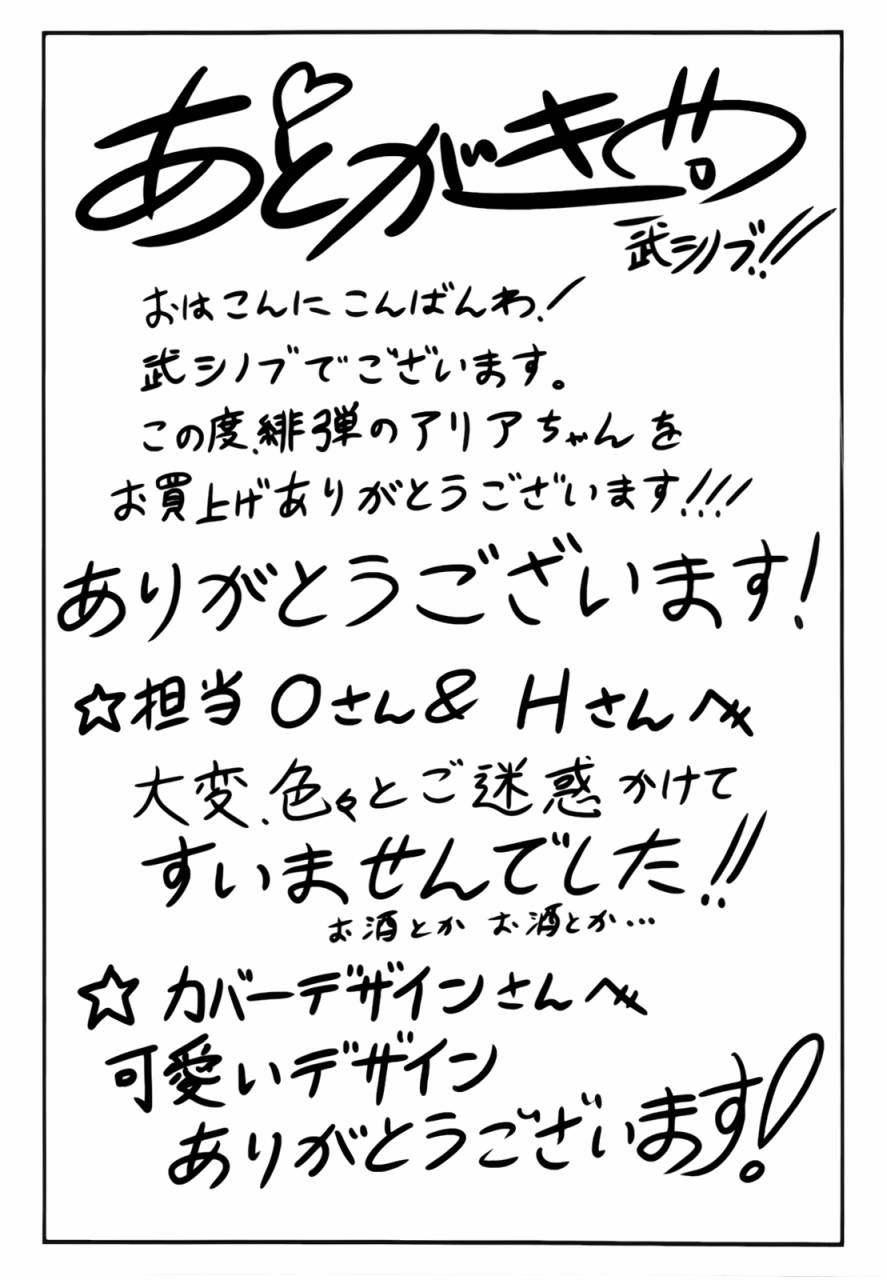 あとがき!!
武シノブ!!
おはこんにこんばんわ!
武シノブでございます。
この度、緋弾のアリアちゃんを
お買上げありがとうございます!!!
ありがとうございます!
☆担当Oさん& Hさんへ
大変、色々とご迷惑かけて
すいませんでした!!
お酒とか お酒とか…
☆カバーデザインさんへ
可愛いデザイン
ありがとうございます!